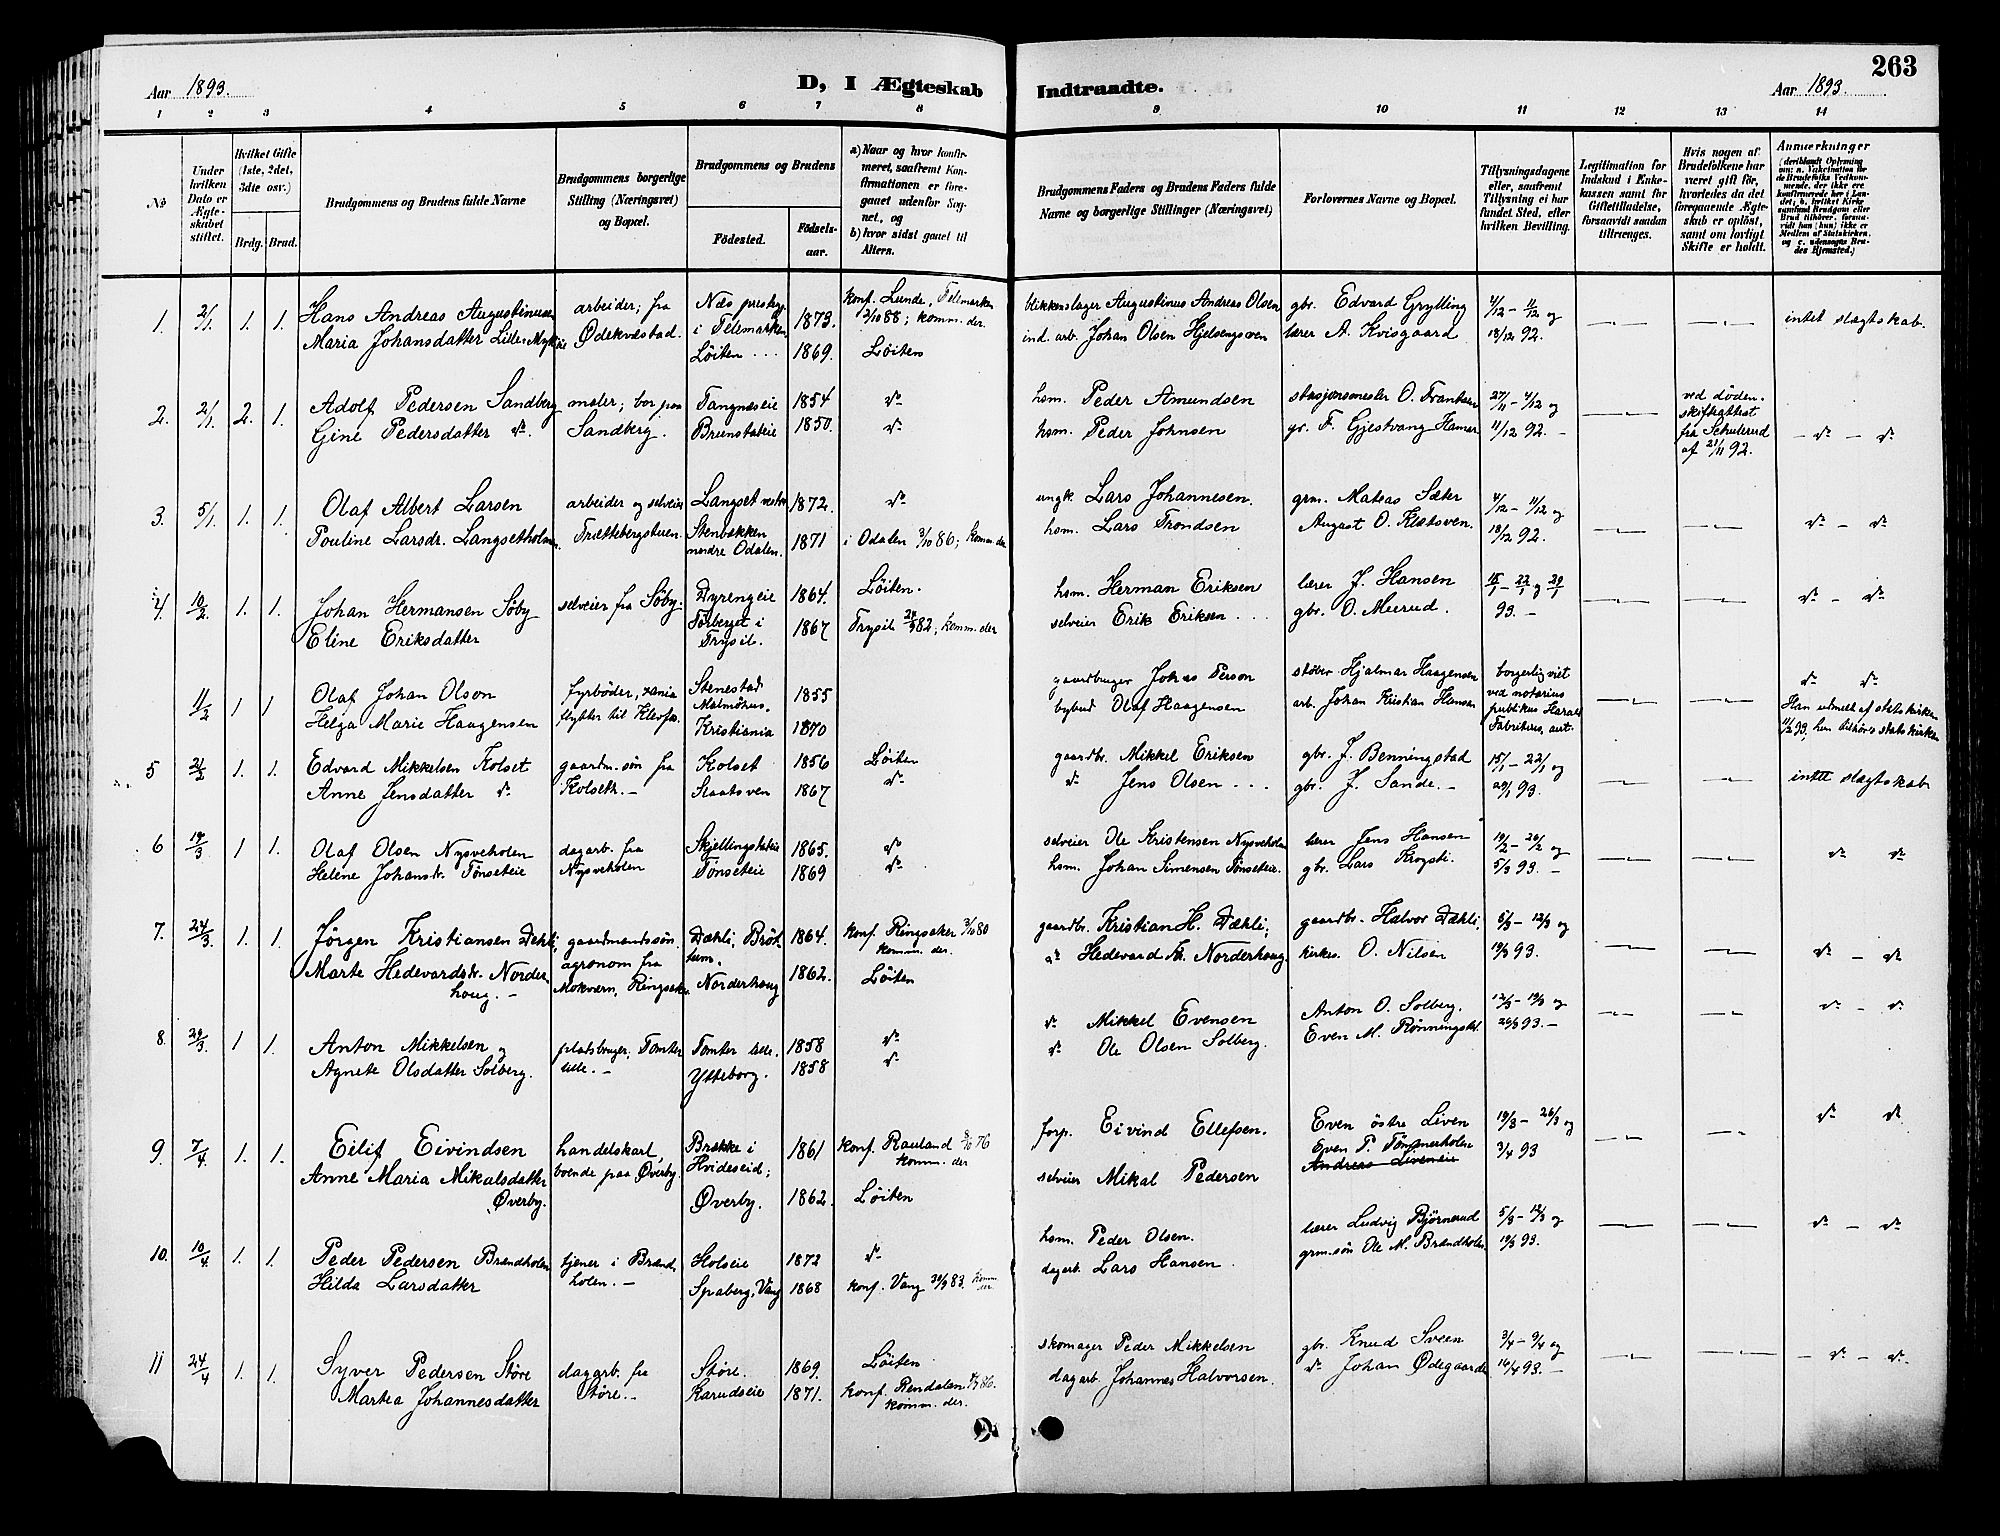 263
Aar 1893.
D, I Ægteskab
Indtraadte.
Aar 1893.
1 2 3 4 5 6 7 8 9 10 11 12 13 14
No
Under hvilken Dato er Ægteskabet stiftet.
Hvilket Gifte (1ste, 2det, 3dte osv.)
Brdg. Brud.
Brudgommens og Brudens fulde Navne
Brudgommens borgerlige Stilling (Næringsvei) og Bopæl.
Brudgommens og Brudens
Fødested.
Fødselsaar.
a) Naar og hvor konfirmeret, saafremt Konfirmationen er foregaaet udenfor Sognet, og
b) hvor sidst gaaet til Alters.
Brudgommens Faders og Brudens Faders fulde Navne og borgerlige Stillinger (Næringsvei)
Forlovernes Navne og Bopæl.
Tillysningsdagene eller, saafremt Tillysning ei har fundet Sted, efter hvilken Bevilling.
Legitimation for Indskud i Enkekassen samt for Giftetilladelse, forsaavidt saadan tiltrænges.
Hvis nogen af Brudefolkene har været gift før, hvorledes da det foregaaende Ægteskab er opløst, samt om lovligt Skifte er holdt.
Anmærkninger
(deriblandt Oplysning om: a. Vaccination for de Brudefolks Vedkommende, der ikke ere konfirmerede her i Landet; b. hvilket Kirkesamfund Brudgom eller Brud tilhører, forsaavidt han (hun) ikke er Medlem af Statskirken, og c. udensogns Brudes Hjemsted.)
1. 2/1. 1. 1. Hans Andreas Augustinusen arbeider; fra Næs prestegj. 1873. konf. Lunde, Telemarken blikkenslager Augustinus Andreas Olsen gbr. Edvard Grylling 4/12 – 11/12 og intet slægtskab.
Maria Johansdatter Lille-Myhre Ødekvæstad. i Telemarken 2/10 88; komm. der. ind. arb. Johan Olsen Hjelsengsven lærer A. Kvisgaard 18/12 92.
Løiten 1869. Løiten
2. 2/1. 2. 1. Adolf Pedersen Sandberg maler; bor paa Tangnæseie 1854 do hsm. Peder Amundsen stasjonsmester O. Frantsen 27/11 – 4/12 og ved døden.
Gine Pedersdatter do. Sandberg. Brenstadeie 1850. do. hsm. Peder Johnsen gr. F. Gjestvang Hamar 11/12 92. skifteattest
fra Schulerud – do – do
af 21/11 92.
3. 5/1. 1. 1. Olaf Albert Larsen arbeider og selveier Langset vestre 1872. do ungk. Lars Johannesen. grm. Mateas Sæter 4/12 – 11/12 og
Pouline Larsdr. Langsetholmen. Trættebergstuen. Stenbækken 1871 i Odalen 3/10 86; komm. der hsm. Lars Trondsen August O. Klætsven. 18/12 92. do – do
nordre Odalen.
4. 10/2 1. 1. Johan Hermansen Søby selveier fra Søby. Dyrengeie 1864. Løiten. hsm. Herman Eriksen lærer J. Hansen 15/1 – 22/1 og 29/1
Eline Eriksdatter Førberget i 1867 Trysil 24/9 82; komm. der selveier Erik Eriksen gbr. O. Meerud. 93. do – do
Trysil.
11/2 1 1 Olaf Johan Olson fyrbøder, xania Stenestad 1855 gaardbruger Johas Person støber Hjalmar Haagensen borgerlig viet do do
Helga Marie Haagensen flytter til Kløfta. Malmøhus. bybud Olaf Haagensen arb. Johan Kristian Hansen ved notarius Han udmeldt af statskirken
Kristiania 1870 publikus Harald 11/2 93, hun tilhører statskirken
Fabritius, aut.
5 21/2 1. 1. Edvard Mikkelsen Kolset gaardm. søn fra Kolset 1856 Løiten gaardbr. Mikkel Eriksen gbr. J. Benningstad 15/1 – 22/1 og
Anne Jensdatter do Kolseth. Staatsven 1867 do do Jens Olsen gbr. J. Sande. 29/1 93. intet slægtskab
6 19/3 1 1. Olaf Olsen Nysveholen dagarb. fra Skjellingstadeie 1865. do selveier Ole Kristensen Nysveholen lærer Jens Hansen 19/2 – 26/2 og
Helene Johansdr. Tønseteie Nysveholen Tønseteie 1869 do hsm. Johan Simensen Tønseteie. gbr. Lars Krogsti. 5/3 93. do do
7. 24/3. 1. 1. Jørgen Kristiansen Dæhli; gaardmandssøn. Dæhli, Brøttum. 1864. konf. Ringsaker 3/10 80 gaardbr. Kristian H. Dæhli; gaardbr. Halvor Dæhli 5/3 – 12/3 og
Marte Hedevardsdr. Norderhoug. agronom fra Mokværn, Ringsaker Norderhoug 1862. komm. der. Løiten do Hedevard Kr. Norderhoug. kirkes. O. Nilsen 19/3 93. do – do
8. 29/3. 1 1. Anton Mikkelsen og pladsbruger. Tomter Tomter lille. 1858 do do Mikkel Evensen Anton O. Solberg. 12/3 – 19/3 og do – do
Agnete Olsdatter Solberg. lille. Ytteborg. 1858 do do Ole Olsen Solberg. Even M. Rønningstad. 26/3 93.
9. 7/4. 1. 1. Eilif Eivindsen handelskarl, Brække i 1861 konf. Rauland 8/10 76 forp. Eivind Ellefsen. Even østre Liven 19/3 – 26/3 og do do
Anne Maria Mikalsdatter boende paa Øverby. Hvideseid; komm. der Even P. Tømmerholen 3/4 93
Øverby. Øverby. 1862. Løiten selveier Mikal Pedersen Andreas Liveneie
10. 10/4. 1. 1. Peder Pedersen Brændholen tjener i Brændholen. Holseie 1872 do hsm. Peder Olsen. lærer Ludvig Bjørnerud 5/3 – 12/3 og do – do.
Hilda Larsdatter Spaberg, Vang 1868 konf. Vang 30/9 83. komm. der. dagarb. Lars Hansen. grm. søn Ole M. Brændholen 19/3 93.
11 24/4 1. 1. Syver Pedersen Støre dagarb. fra Støre. 1869. Løiten. skomager Peder Mikkelsen gbr. Knud Sveen 3/4 – 9/4 og
Martea Johannesdatter Støre. Karudseie 1871. konf. Rendalen 86. komm. der. dagarb. Johannes Halvorsen. do Johan Ødegaarden 16/4 93. – do – do.